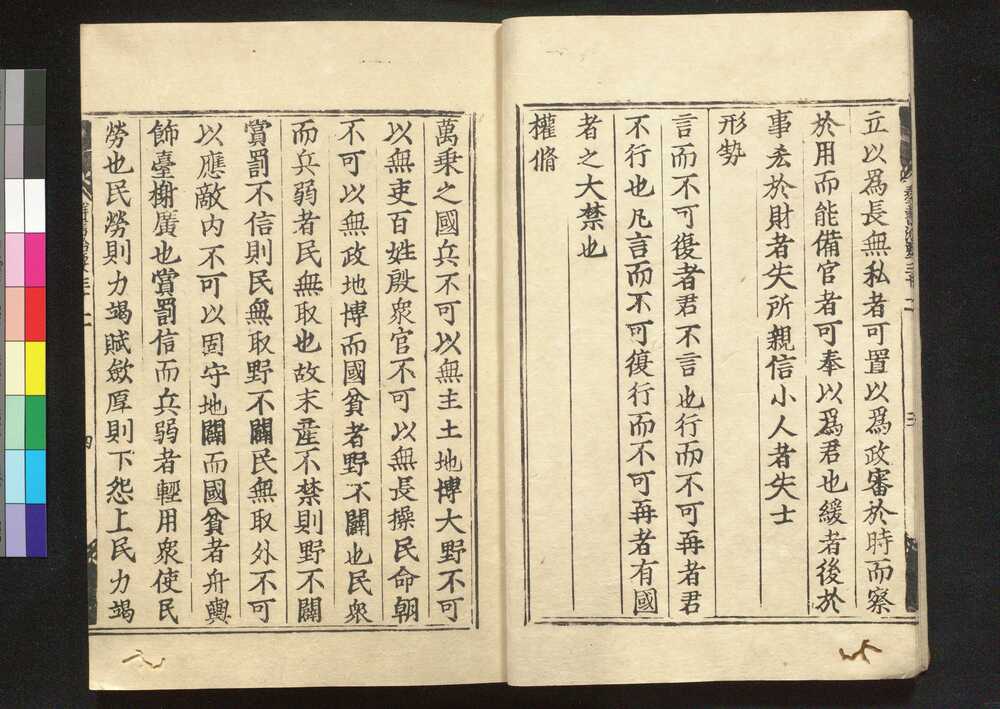 立以爲長無私者可置以爲政審於時而察
於用而能備官者可奉以爲君也緩者後於
事𠫤於財者失所親信小人者失士
形勢
言而不可復者君不言也行而不可再者君
不行也凡言而不可復行而不可再者有國
者之大禁也
權脩
萬乗之國兵不可以無主土地博大野不可
以無吏百姓殷衆官不可以無長操民命朝
不可以無政地博而國貧者野不闢也民衆
而兵弱者民無取也故末産不禁則野不闢
賞罰不信則民無取野不闢民無取外不可
以應敵内不可以固守地闢而國貧者舟輿
飾臺榭廣也賞罰信而兵弱者輕用衆使民
勞也民勞則力竭賦斂厚則下怨上民力竭